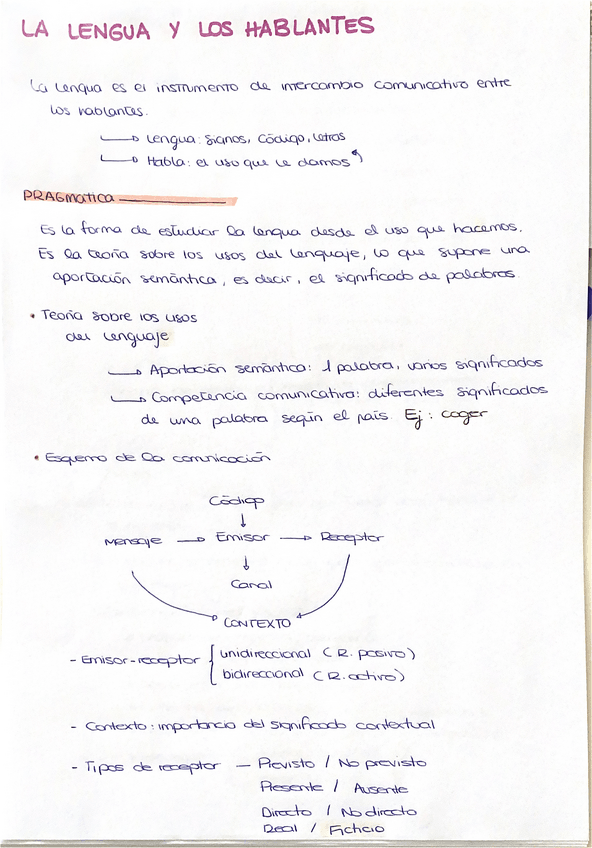 LA LENGUA Y LOS HABLANTES
La lengua es el instrumento de intercambio comunicativo entre
los hablantes.
→ Lengua: signos, código, letras
→ Habla: el uso que le damos
PRAGMATICA
Es la forma de estudiar la lengua desde el uso que hacemos.
Es la teoría sobre los usos del lenguaje, lo que supone una
aportación semántica, es decir, el significado de palabras.
• Teoría sobre los usos
del lenguaje
→ Aportación semántica: 1 palabra, varios significados
→ Competencia comunicativa: diferentes significados
de una palabra según el país. Ej: coger
• Esquema de la comunicación
Código
↓
Mensaje → Emisor → Receptor
↓
Canal
CONTEXTO
- Emisor-receptor { unidireccional (R. pasivo)
bidireccional (R. activo)
- Contexto: importancia del significado contextual
- Tipos de receptor — Previsto / No previsto
Presente / Ausente
Directo / No directo
Real / Ficticio